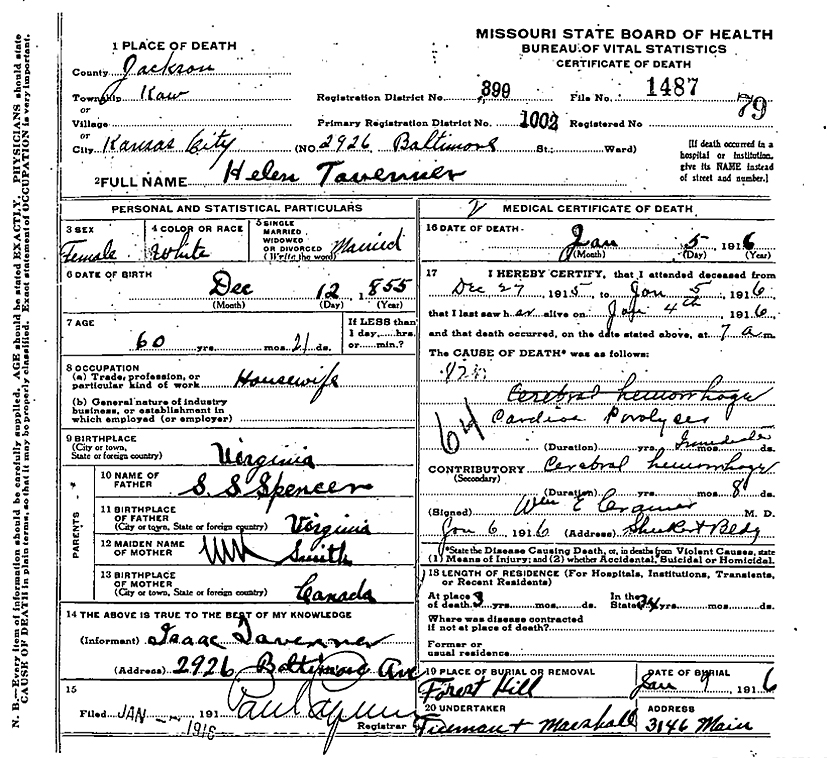 MISSOURI STATE BOARD OF HEALTH
BUREAU OF VITAL STATISTICS
CERTIFICATE OF DEATH
1 PLACE OF DEATH
County Jackson
Township Kaw
or
Village
or
City Kansas City
Registration District No. 399
File No. 1487
Primary Registration District No. 1002
Registered No. 79
(NO. 2926 Baltimore St.; Ward)
[If death occurred in a hospital or institution, give its NAME instead of street and number.]
2 FULL NAME Helen Tavenner
PERSONAL AND STATISTICAL PARTICULARS
3 SEX
Female
4 COLOR OR RACE
White
5 SINGLE
MARRIED
WIDOWED
OR DIVORCED
(Write the word)
Married
6 DATE OF BIRTH
Dec 12, 1855
(Month) (Day) (Year)
7 AGE
60 yrs. mos. 21 ds.
If LESS than
1 day,....hrs.
or....min.?
8 OCCUPATION
(a) Trade, profession, or
particular kind of work Housewife
(b) General nature of industry
business, or establishment in
which employed (or employer)
9 BIRTHPLACE
(City or town,
State or foreign country)
Virginia
PARENTS
10 NAME OF
FATHER
S. S Spencer
11 BIRTHPLACE
OF FATHER
(City or town, State or foreign country)
Virginia
12 MAIDEN NAME
OF MOTHER
Smith
13 BIRTHPLACE
OF MOTHER
(City or town, State or foreign country)
Canada
14 THE ABOVE IS TRUE TO THE BEST OF MY KNOWLEDGE
(Informant) Isaac Tavenner
(Address) 2926 Baltimore Ave
15
Filed JAN 191
1916
Registrar
MEDICAL CERTIFICATE OF DEATH
16 DATE OF DEATH
Jan 5, 1916
(Month) (Day) (Year)
17 I HEREBY CERTIFY, that I attended deceased from
Dec 27, 1915, to Jan 5, 1916
that I last saw her alive on Jan 4th, 1916,
and that death occurred, on the date stated above, at 7 a m.
The CAUSE OF DEATH* was as follows:
Cerebral hemorrhage
64
Cardiac Paralyses
(Duration) yrs. mos. ds. Immediate
CONTRIBUTORY Cerebral hemorrhage
(Secondary)
(Duration) yrs. mos. 8 ds.
(Signed) Wm E Cramer M. D.
Jan 6, 1916 (Address) Shukert Bldg
*State the Disease Causing Death, or, in deaths from Violent Causes, state
(1) Means of Injury; and (2) whether Accidental, Suicidal or Homicidal.
18 LENGTH OF RESIDENCE (For Hospitals, Institutions, Transients,
or Recent Residents)
At place
of death 3 yrs. mos. ds.
In the
State 34 yrs. mos. ds.
Where was disease contracted
if not at place of death?
Former or
usual residence
19 PLACE OF BURIAL OR REMOVAL
Forest Hill
DATE OF BURIAL
Jan 9, 1916
20 UNDERTAKER
Freeman & Marshall
ADDRESS
3146 Main
N. B.—Every item of information should be carefully supplied. AGE should be stated EXACTLY. PHYSICIANS should state
CAUSE OF DEATH in plain terms, so that it may be properly classified. Exact statement of OCCUPATION is very important.